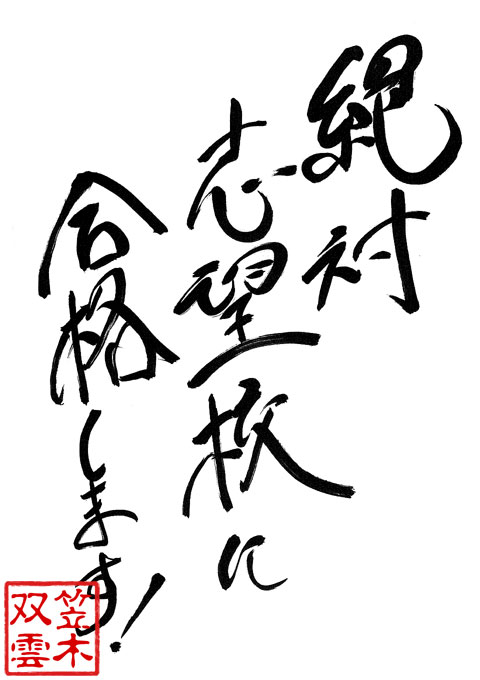 絶対
志望校に
合格します!
笠木
双雲